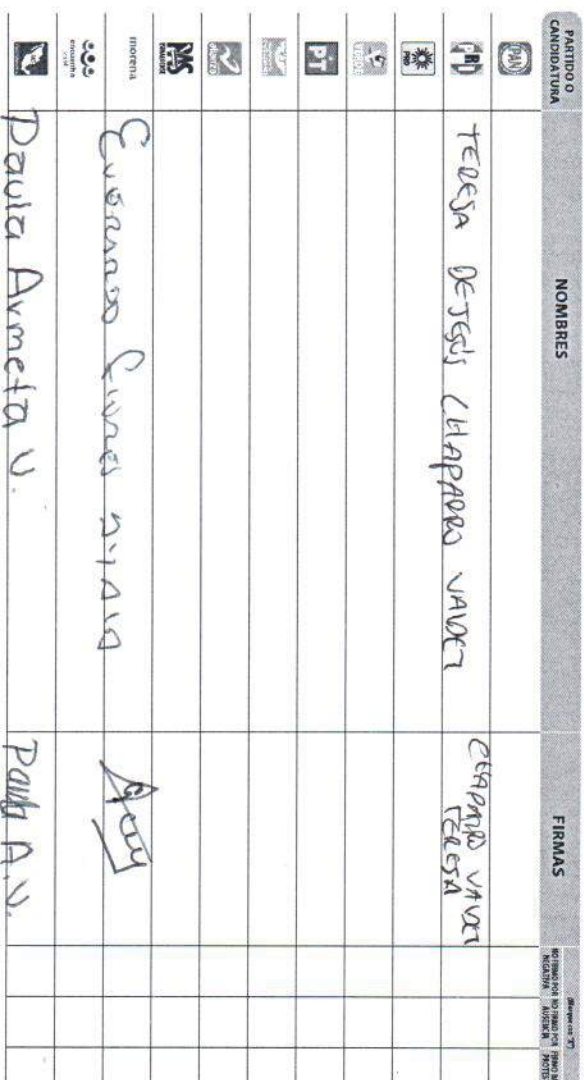 PARTIDO O CANDIDATURA NOMBRES FIRMAS (Marque con "X")
NO FIRMÓ POR NEGATIVA NO FIRMÓ POR AUSENCIA
PAN
PRI TERESA DE JESÚS CHAPARRO VALDEZ CHAPARRO VALDEZ TERESA
PRD
VERDE
PT
PAS
morena
encuentro social
Paula Armeta V. Paula A.V.